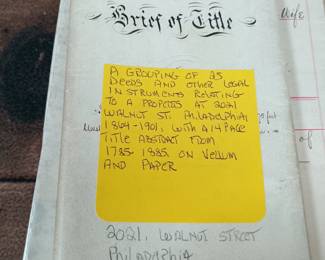 Brief of Title
Wife
A GROUPING OF 25
DEEDS AND OTHER LEGAL
INSTRUMENTS RELATING
TO A PROPERTIES AT 2021
WALNUT ST. PHILADELPHIA,
1864-1901, WITH A 14 PAGE
TITLE ABSTRACT FROM
1785-1885 ON VELLUM
AND PAPER
2021, WALNUT STREET
PhilADElPhiA